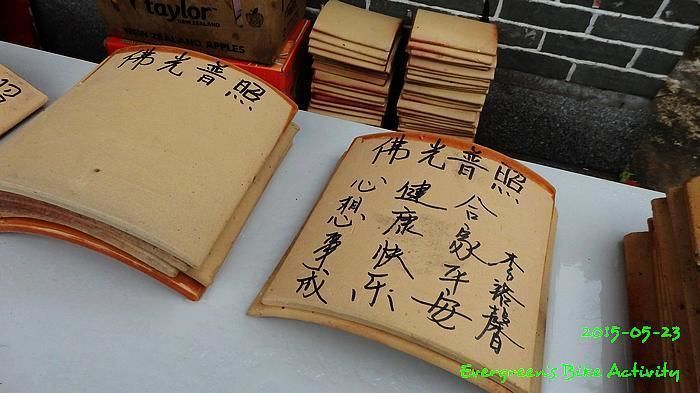 taylor
NEW ZEALAND
NEW ZEALAND APPLES
照
佛光普照
佛光普照
合家平安
健康快乐
心想事成
李珞馨
2015-05-23
Evergreen's Bike Activity